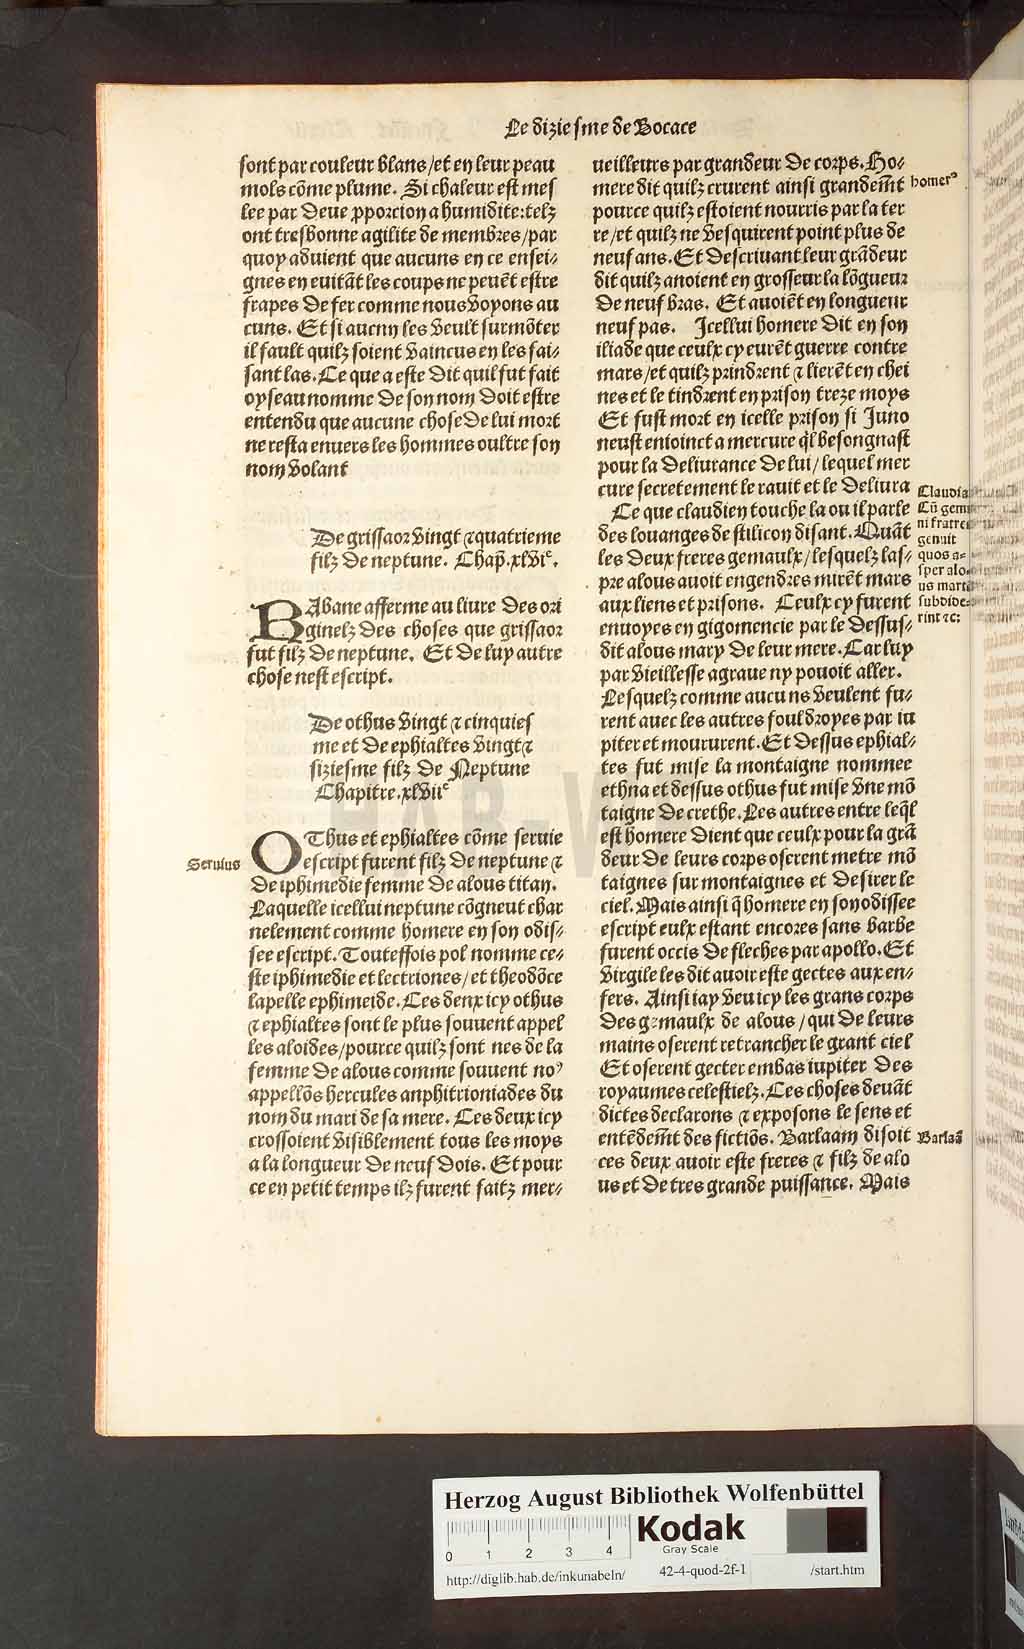 Le dizie sme de Bocace
sont par couleur blans/et en leur peau
mols cõme plume. Si chaleur est mes
lee par deue ꝓporcion a humidite: telz
ont tresbonne agilite de membres/par
quoy aduient que aucuns en ce ensei-
gnes en euitãt les coups ne peuẽt estre
frapes de fer comme nous voyons au
cuns. Et si aucny les veult surmõter
il fault quilz soient vaincus en les fai-
sant las. Ce que a este dit quil fut fait
oyseau nomme de son nom doit estre
entendu que aucune chose de lui mort
ne resta enuers les hommes oultre son
nom volant
De grissaor vingt ⁊ quatrieme
filz de neptune. Chap̃. xlviᵉ.
RAbane afferme au liure des ori
ginelz des choses que grissaor
fut filz de neptune. Et de luy autre
chose nest escript.
De othus vingt ⁊ cinquies
me et de ephialtes vingt ⁊
siziesme filz de Neptune
Chapitre. xlviiᵉ
Seruius
OThus et ephialtes cõme seruie
escript furent filz de neptune ⁊
de iphimedie femme de alous titan.
Laquelle icellui neptune cõgneut char
nelement comme homere en son odis-
see escript. Touteffois pol nomme ce-
ste iphimedie et lectriones/et theodõce
lapelle ephimeide. Ces denx icy othus
⁊ ephialtes sont le plus souuent appel
les aloides/pource quilz sont nes de la
femme de alous comme souuent noꝰ
appellõs hercules anphitrioniades du
nom du mari de sa mere. Ces deux icy
crossoient visiblement tous les moys
a la longueur de neuf dois. Et pour
ce en petit temps ilz furent faitz mer-
ueilleurs par grandeur de corps. Ho-
mere dit quilz crurent ainsi grandem̃t
homerꝰ
pource quilz estoient nourris par la ter
re/et quilz ne vesquirent point plus de
neuf ans. Et descriuant leur grãdeur
dit quilz anoient en grosseur la lõgueur
de neuf bras. Et auoiẽt en longueur
neuf pas. Icellui homere dit en son
iliade que ceulx cy eurẽt guerre contre
mars/et quilz prindrent ⁊ lierẽt en chei
nes et le tindrent en prison treze moys
Et fust mort en icelle prison si Juno
neust enioinct a mercure q̃l besongnast
pour la deliurance de lui/lequel mer
cure secretement le rauit et le deliura
Ce que claudien touche la ou il parle
des louanges de stilicon disant. Quãt
les deux freres gemaulx/lesquelz las-
pre alous auoit engendres mirẽt mars
aux liens et prisons. Ceulx cy furent
enuoyes en gigomencie par le dessus-
dit alous mary de leur mere. Car luy
par vieillesse agraue ny pouoit aller.
Claudia
Cũ gem
ni fratres
genuit
quos a=
sper alo-
us marti
subdide=
rint ⁊c:
Lesquelz comme aucu ns veulent fu-
rent auec les autres fouldroyes par iu
piter et moururent. Et dessus ephial-
tes fut mise la montaigne nommee
ethna et dessus othus fut mise vne mõ
taigne de crethe. Les autres entre leq̃l
est homere dient que ceulx pour la grã
deur de leurs corps oserent metre mõ
taignes sur montaignes et desirer le
ciel. Mais ainsi q̃ homere en son odissee
escript eulx estant encores sans barbe
furent occis de fleches par apollo. Et
virgile les dit auoir este gectes aux en-
fers. Ainsi iay veu icy les grans corps
des gemaulx de alous/qui de leurs
mains oserent retrancher le grant ciel
Et oserent gecter embas iupiter des
royaumes celestielz. Ces choses deuãt
dictes declarons ⁊ exposons le sens et
entẽdem̃t des fictiõs. Barlaam disoit
Barlaã
ces deux auoir este freres ⁊ filz de alo
us et de tres grande puissance. Mais
HAB-W
Herzog August Bibliothek Wolfenbüttel
Kodak
Gray Scale
0 1 2 3 4
http://diglib.hab.de/inkunabeln/ 42-4-quod-2f-1 /start.htm